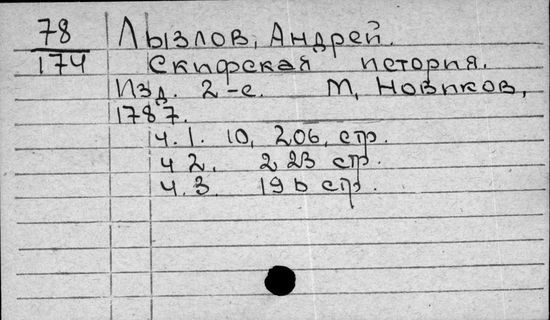 78 Лызлов, Андрей.
174 Скифская история.
Изд. 2-е. М, Новиков,
1787.
ч. 1. 10, 206, стр.
ч 2. 223 стр.
ч. 3. 196 стр.